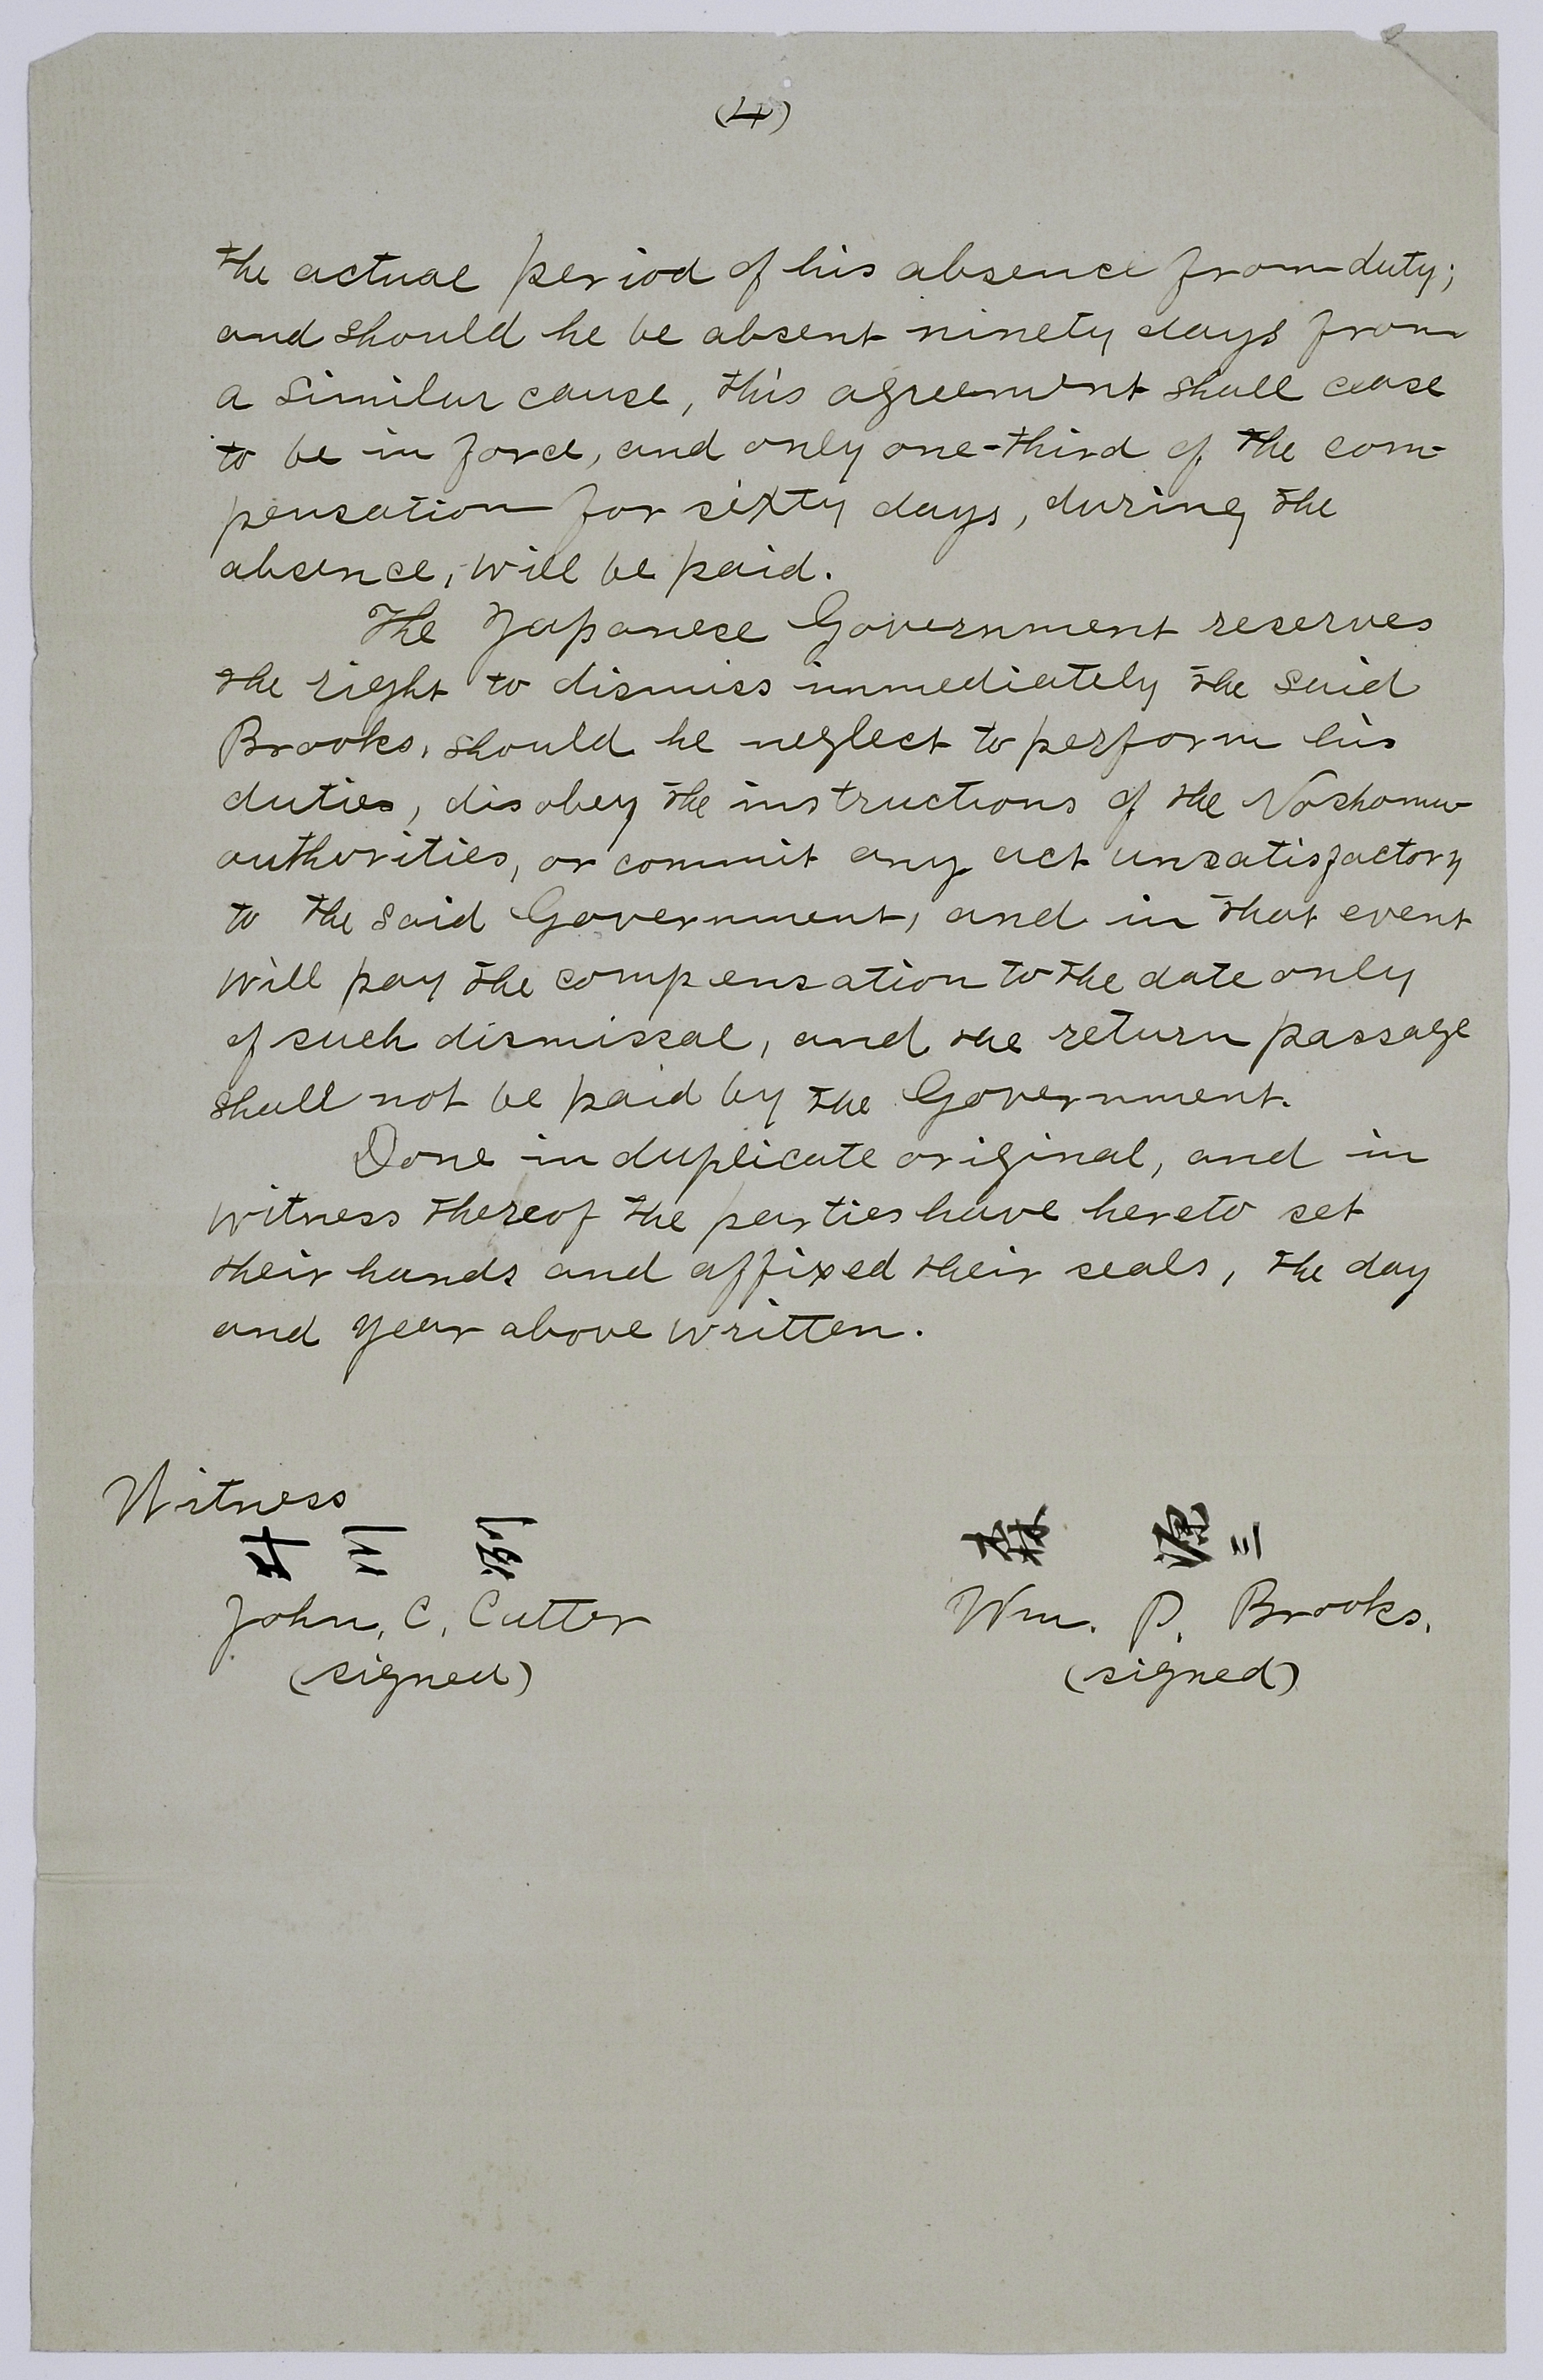 (4)
the actual period of his absence from duty;
and should he be absent ninety days from
a similar cause, this agreement shall cease
to be in force, and only one-third of the com-
pensation for sixty days, during the
absence, will be paid.
The Japanese Government reserves
the right to dismiss immediately the said
Brooks, should he neglect to perform his
duties, disobey the instructions of the Noshomu
authorities, or commit any act unsatisfactory
to the said Government, and in that event
will pay the compensation to the date only
of such dismissal, and the return passage
shall not be paid by the Government.
Done in duplicate original, and in
witness thereof the parties have hereto set
their hands and affixed their seals, the day
and year above written.
Witness
John, C, Cutter
(signed)
Wm. P. Brooks.
(signed)